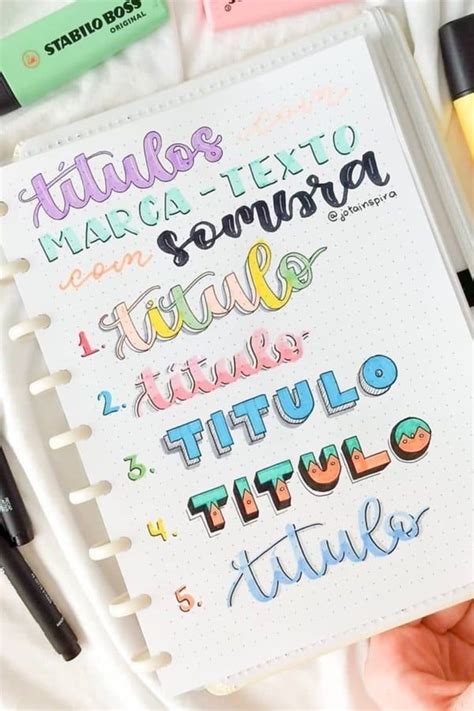 STABILO BOSS
ORIGINAL
títulos com
MARCA-TEXTO
com sombra
@jotainspira
1. titulo
2. titulo
3. TITULO
4. TITULO
5. titulo